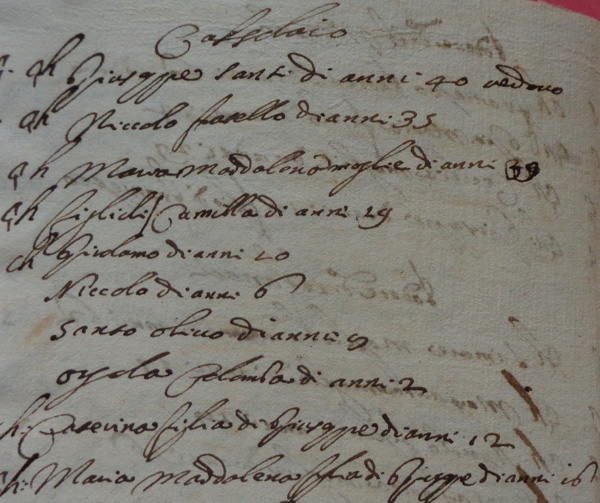 Ch Giuseppe Santi di anni 40 vedovo
Ch Niccolo fratello di anni 35
Ch Maria Maddalena moglie di anni 39
Ch figli di Camilla di anni 19
Ch Girolamo di anni 10
Niccolo di anni 6
Santo di anni 9
Colomba di anni 2
Ch: Caterina figlia di Giuseppe di anni 12
Ch: Maria Maddalena figlia di Giuseppe di anni 16